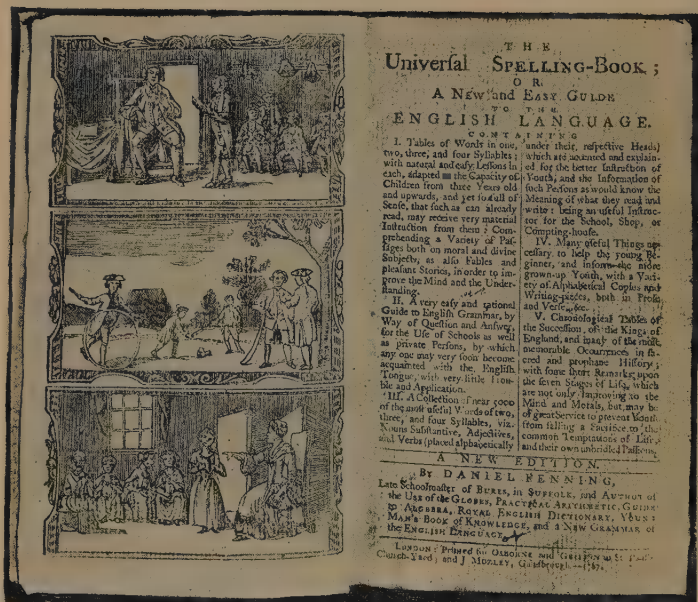 THE
Univerſal SPELLING-BOOK;
OR,
A NEW and EASY GUIDE
TO THE
ENGLISH LANGUAGE.
CONTAINING
I. Tables of Words in one,
two, three, and four Syllables;
with natural and eaſy Leſſons in
each, adapted to the Capacity of
Children from three Years old
and upwards, and yet ſo full of
Senſe, that ſuch as can already
read, may receive very material
Inſtruction from them; Com-
prehending a Variety of Paſ-
ſages both on moral and divine
Subjects, as alſo Fables and
pleaſant Stories, in order to im-
prove the Mind and the Under-
ſtanding.
II. A very eaſy and rational
Guide to Engliſh Grammar, by
Way of Queſtion and Anſwer,
for the Uſe of Schools as well
as private Perſons, by which
any one may very ſoon become
acquainted with the Engliſh
Tongue, with very little Trou-
ble and Application.
III. A Collection of near 5000
of the moſt uſeful Words of two,
three, and four Syllables, viz.
Nouns Subſtantive, Adjectives,
and Verbs (placed alphabetically
under their reſpective Heads)
which are accented and explain-
ed for the better Inſtruction of
Youth, and the Information of
ſuch Perſons as would know the
Meaning of what they read and
write: being an uſeful Inſtruc-
tor for the School, Shop, or
Compting-houſe.
IV. Many uſeful Things ne-
ceſſary to help the young Be-
ginner, and inform the more
grown-up Youth, with a Vari-
ety of Alphabetical Copies and
Writing-pieces, both in Proſe
and Verſe.
V. Chronological Tables of
the Succeſſion of the Kings of
England, and many of the moſt
memorable Occurrences in ſa-
cred and prophane Hiſtory;
with ſome ſhort Remarks upon
the ſeven Stages of Life, which
are not only improving to the
Mind and Morals, but may be
of great Service to prevent Youth
from falling a Sacrifice to the
common Temptations of Life,
and their own unbridled Paſſions.
A NEW EDITION.
By DANIEL FENNING,
Late Schoolmaſter of BURES, in SUFFOLK, and AUTHOR of
the USE of the GLOBES, PRACTICAL ARITHMETIC, GUIDE
to ALGEBRA, ROYAL ENGLISH DICTIONARY, YOUNG
MAN'S BOOK of KNOWLEDGE, and a NEW GRAMMAR of
the ENGLISH LANGUAGE.
LONDON: Printed for OSBORNE and GRIFFIN in St
Church-Yard; and J MOZLEY, Gainſbrough